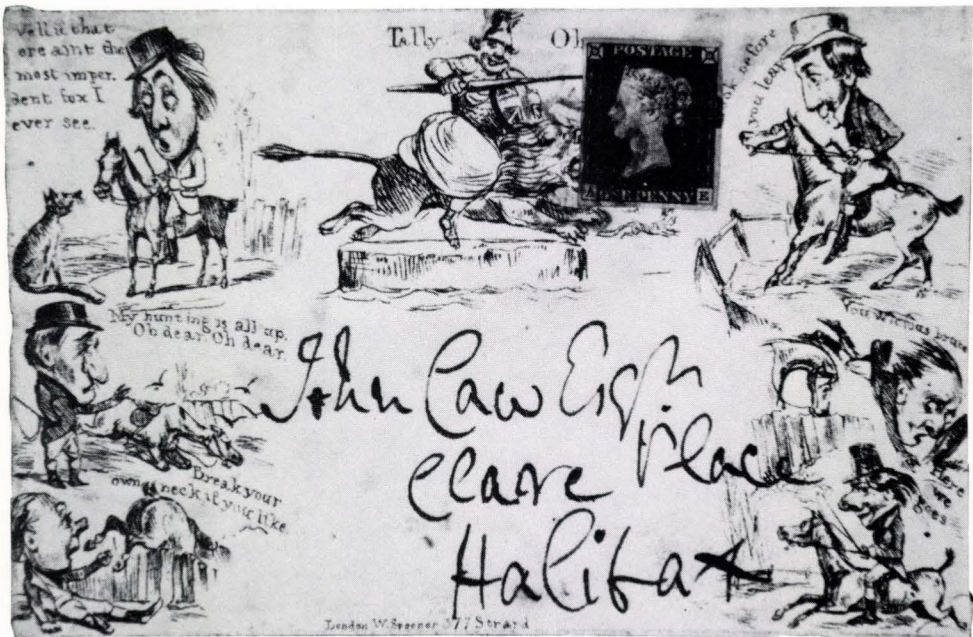 Vell if that
ere aint the
most imper.
dent fox I
ever see.
Tally Oh
POSTAGE
ONE PENNY
before
you leap
My hunting is all up.
Oh dear. Oh dear.
You
brute
John Caw Esqr.
Claire Place
Halifax
Break your
own neck if you like
Here
we
goes
London W. Spooner 377 Strand